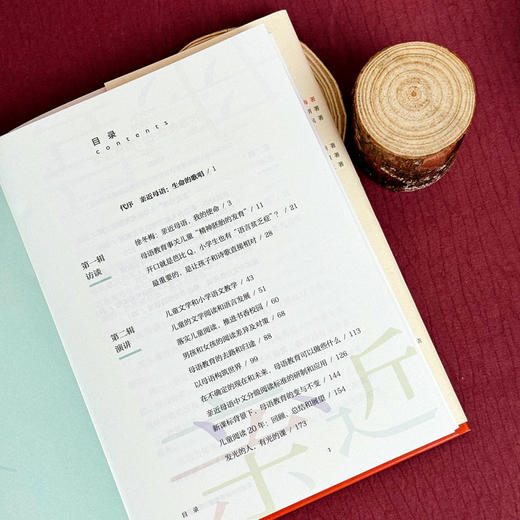 目录
contents
代序 亲近母语：生命的歌唱 / 1
第一辑
访谈
徐冬梅：亲近母语，我的使命 / 3
母语教育事关儿童“精神胚胎的发育” / 11
开口就是芭比Q，小学生也有“语言贫乏症”？ / 21
最重要的，是让孩子和诗歌直接相对 / 28
第二辑
演讲
儿童文学和小学语文教学 / 43
儿童的文学阅读和语言发展 / 51
落实儿童阅读，推进书香校园 / 60
男孩和女孩的阅读差异及对策 / 68
母语教育的去路和归途 / 88
以母语构筑世界 / 99
在不确定的现在和未来，母语教育可以做些什么 / 113
亲近母语中文分级阅读标准的研制和应用 / 126
新课标背景下，母语教育的变与不变 / 144
儿童阅读20年：回顾、总结和展望 / 154
发光的人，有光的课 / 173
亲近
目录
1